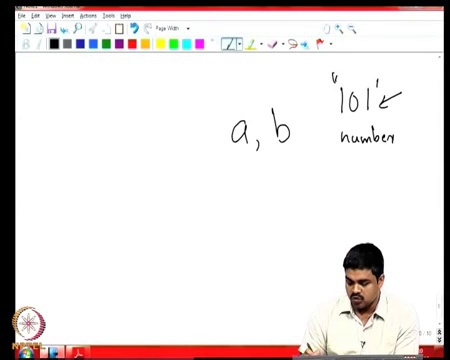 File Edit View Insert Actions Tools Help
Page Width
B I
"101"
a, b
number